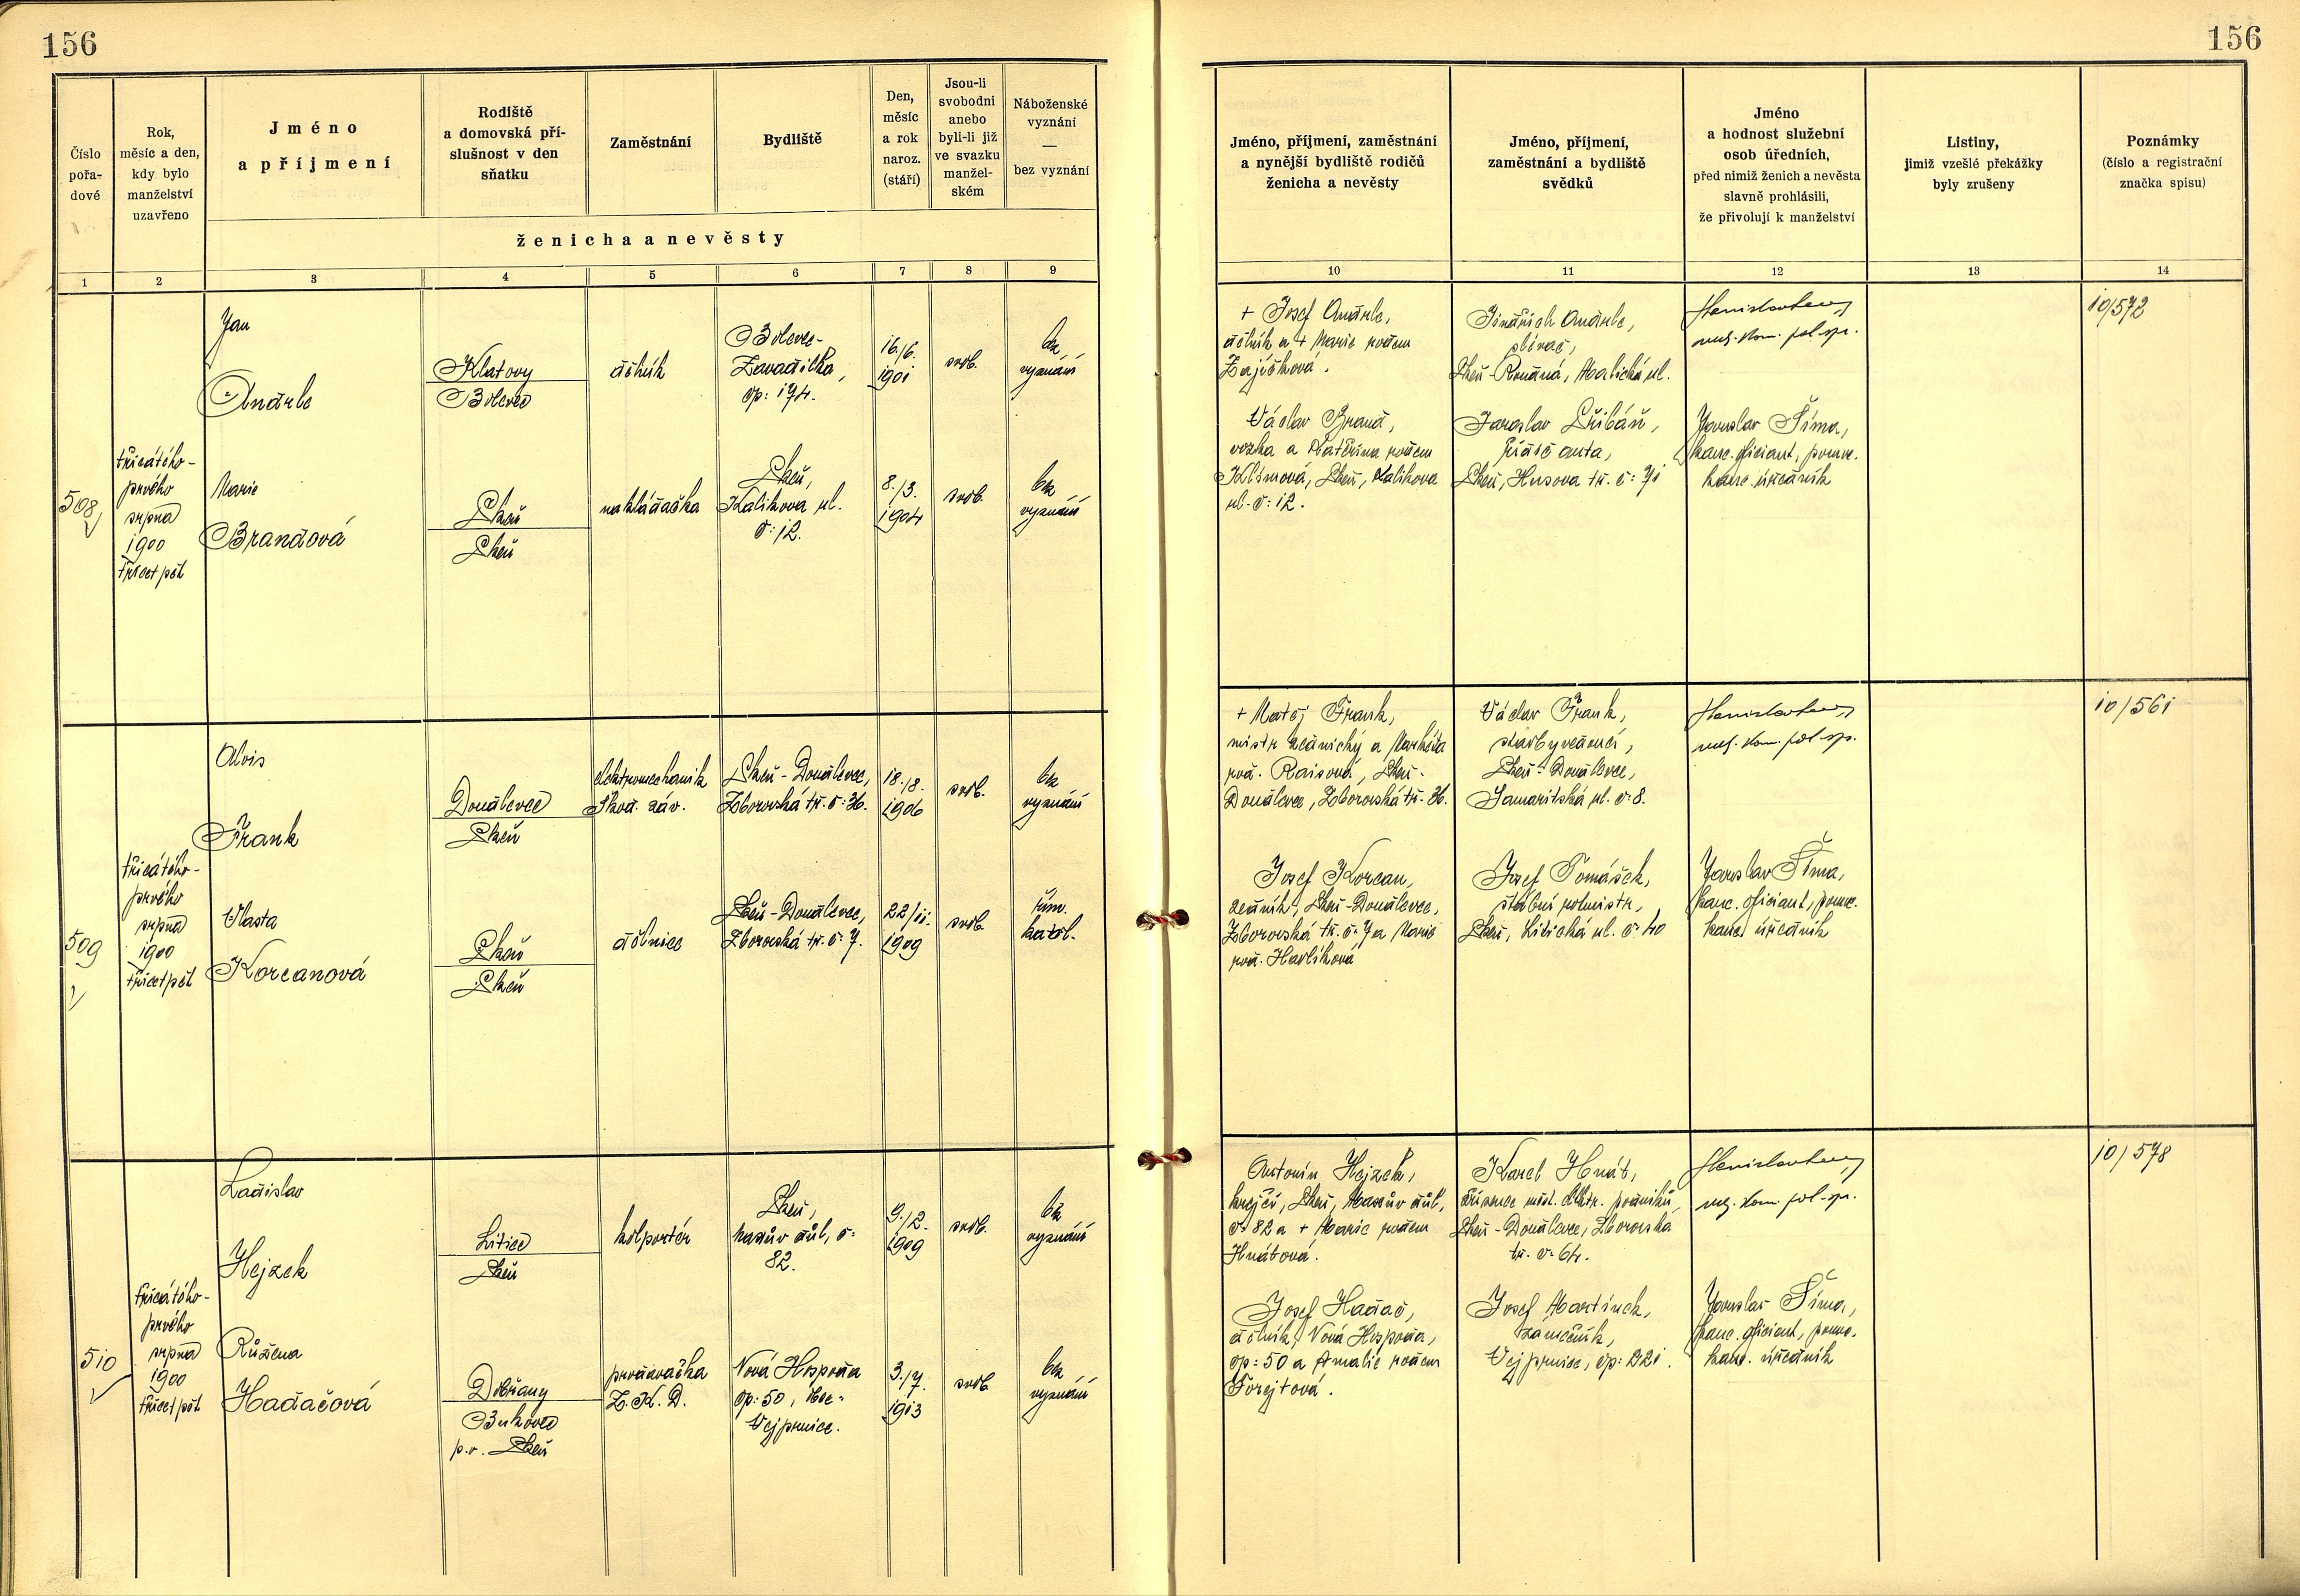 156
156
Číslo
pořa-
dové
Rok,
měsíc a den,
kdy bylo
manželství
uzavřeno
Jméno
a příjmení
Rodiště
a domovská pří-
slušnost v den
sňatku
Zaměstnání
Bydliště
Den,
měsíc
a rok
naroz.
(stáří)
Jsou-li
svobodni
anebo
byli-li již
ve svazku
manžel-
ském
Náboženské
vyznání
—
bez vyznání
ženicha a nevěsty
Jméno, příjmení, zaměstnání
a nynější bydliště rodičů
ženicha a nevěsty
Jméno, příjmení,
zaměstnání a bydliště
svědků
Jméno
a hodnost služební
osob úředních,
před nimiž ženich a nevěsta
slavně prohlásili,
že přivolují k manželství
Listiny,
jimiž vzešlé překážky
byly zrušeny
Poznámky
(číslo a registrační
značka spisu)
1 2 3 4 5 6 7 8 9
10 11 12 13 14
508
třicátého-
prvého
srpna
1900
třicetpět
Jan
Andrle
Klatovy
Bolevec
dělník
Bolevec-
Zavadilka,
čp: 174.
16./6.
1901
svob.
bez
vyznání
Marie
Brandová
Plzeň
Plzeň
nakládačka
Plzeň,
Kalikova ul.
č: 12.
8./3.
1904
svob.
bez
vyznání
+ Josef Andrle,
dělník a + Marie rodem
Zajíčková.
Václav Brand,
vozka a Kateřina rodem
Klímová, Plzeň, Kalikova
ul. č: 12.
Jindřich Andrle,
slévač,
Plzeň-Roudná, Malická ul.
Jaroslav
řidič auta,
Plzeň, Husova tř. č: 71
měs. kom. pol. spr.
Jaroslav Šíma,
kanc. oficiant, pomoc.
kanc. úředník
10/572
509
třicátého-
prvého
srpna
1900
třicetpět
Alois
Frank
Doudlevce
Plzeň
elektromechanik
Škod. záv.
Plzeň-Doudlevce,
Zborovská tř. č: 36.
18./8.
1906
svob.
bez
vyznání
Vlasta
Korcanová
Plzeň
Plzeň
dělnice
Plzeň-Doudlevce,
Zborovská tř. č: 7.
22/11.
1909
svob.
řím.
katol.
+ Matěj Frank,
mistr zednický a Markéta
rod. Raisová, Plzeň-
Doudlevce, Zborovská tř. 36.
Josef Korcan,
zedník, Plzeň-Doudlevce,
Zborovská tř. č: 7 a Marie
rod. Havlíková
Václav Frank,
stavbyvedoucí,
Plzeň-Doudlevce,
Samaritská ul. č: 8.
Josef Tomášek,
štábní rotmistr,
Plzeň, Litická ul. č: 40
měs. kom. pol. spr.
Jaroslav Šíma,
kanc. oficiant, pomoc.
kanc. úředník
10/561
510
třicátého-
prvého
srpna
1900
třicetpět
Ladislav
Hejzek
Litice
Plzeň
kolportér
Plzeň,
Maxův důl, č:
82.
9./2.
1909
svob.
bez
vyznání
Růžena
Hadačová
Dobřany
Bukovec
p. v. Plzeň
prodavačka
Z. K. D.
Nová Hospoda
čp: 50, obec
Vejprnice.
3./7.
1913
svob.
bez
vyznání
Antonín Hejzek,
krejčí, Plzeň, Maxův důl,
č: 82 a + Marie rodem
Hnátová.
Josef Hadač,
dělník, Nová Hospoda,
čp: 50 a Amalie rodem
Forejtová.
Karel Hnát,
zřízenec měst. elektr. podniků,
Plzeň-Doudlevce, Zborovská
tř. č: 64.
Josef Martínek,
zámečník,
Vejprnice, čp: 221.
měs. kom. pol. spr.
Jaroslav Šíma,
kanc. oficiant, pomoc.
kanc. úředník
10/578